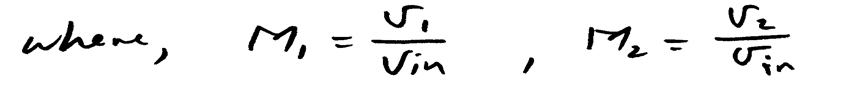 where, M₁ = v₁/vin , M₂ = v₂/vin